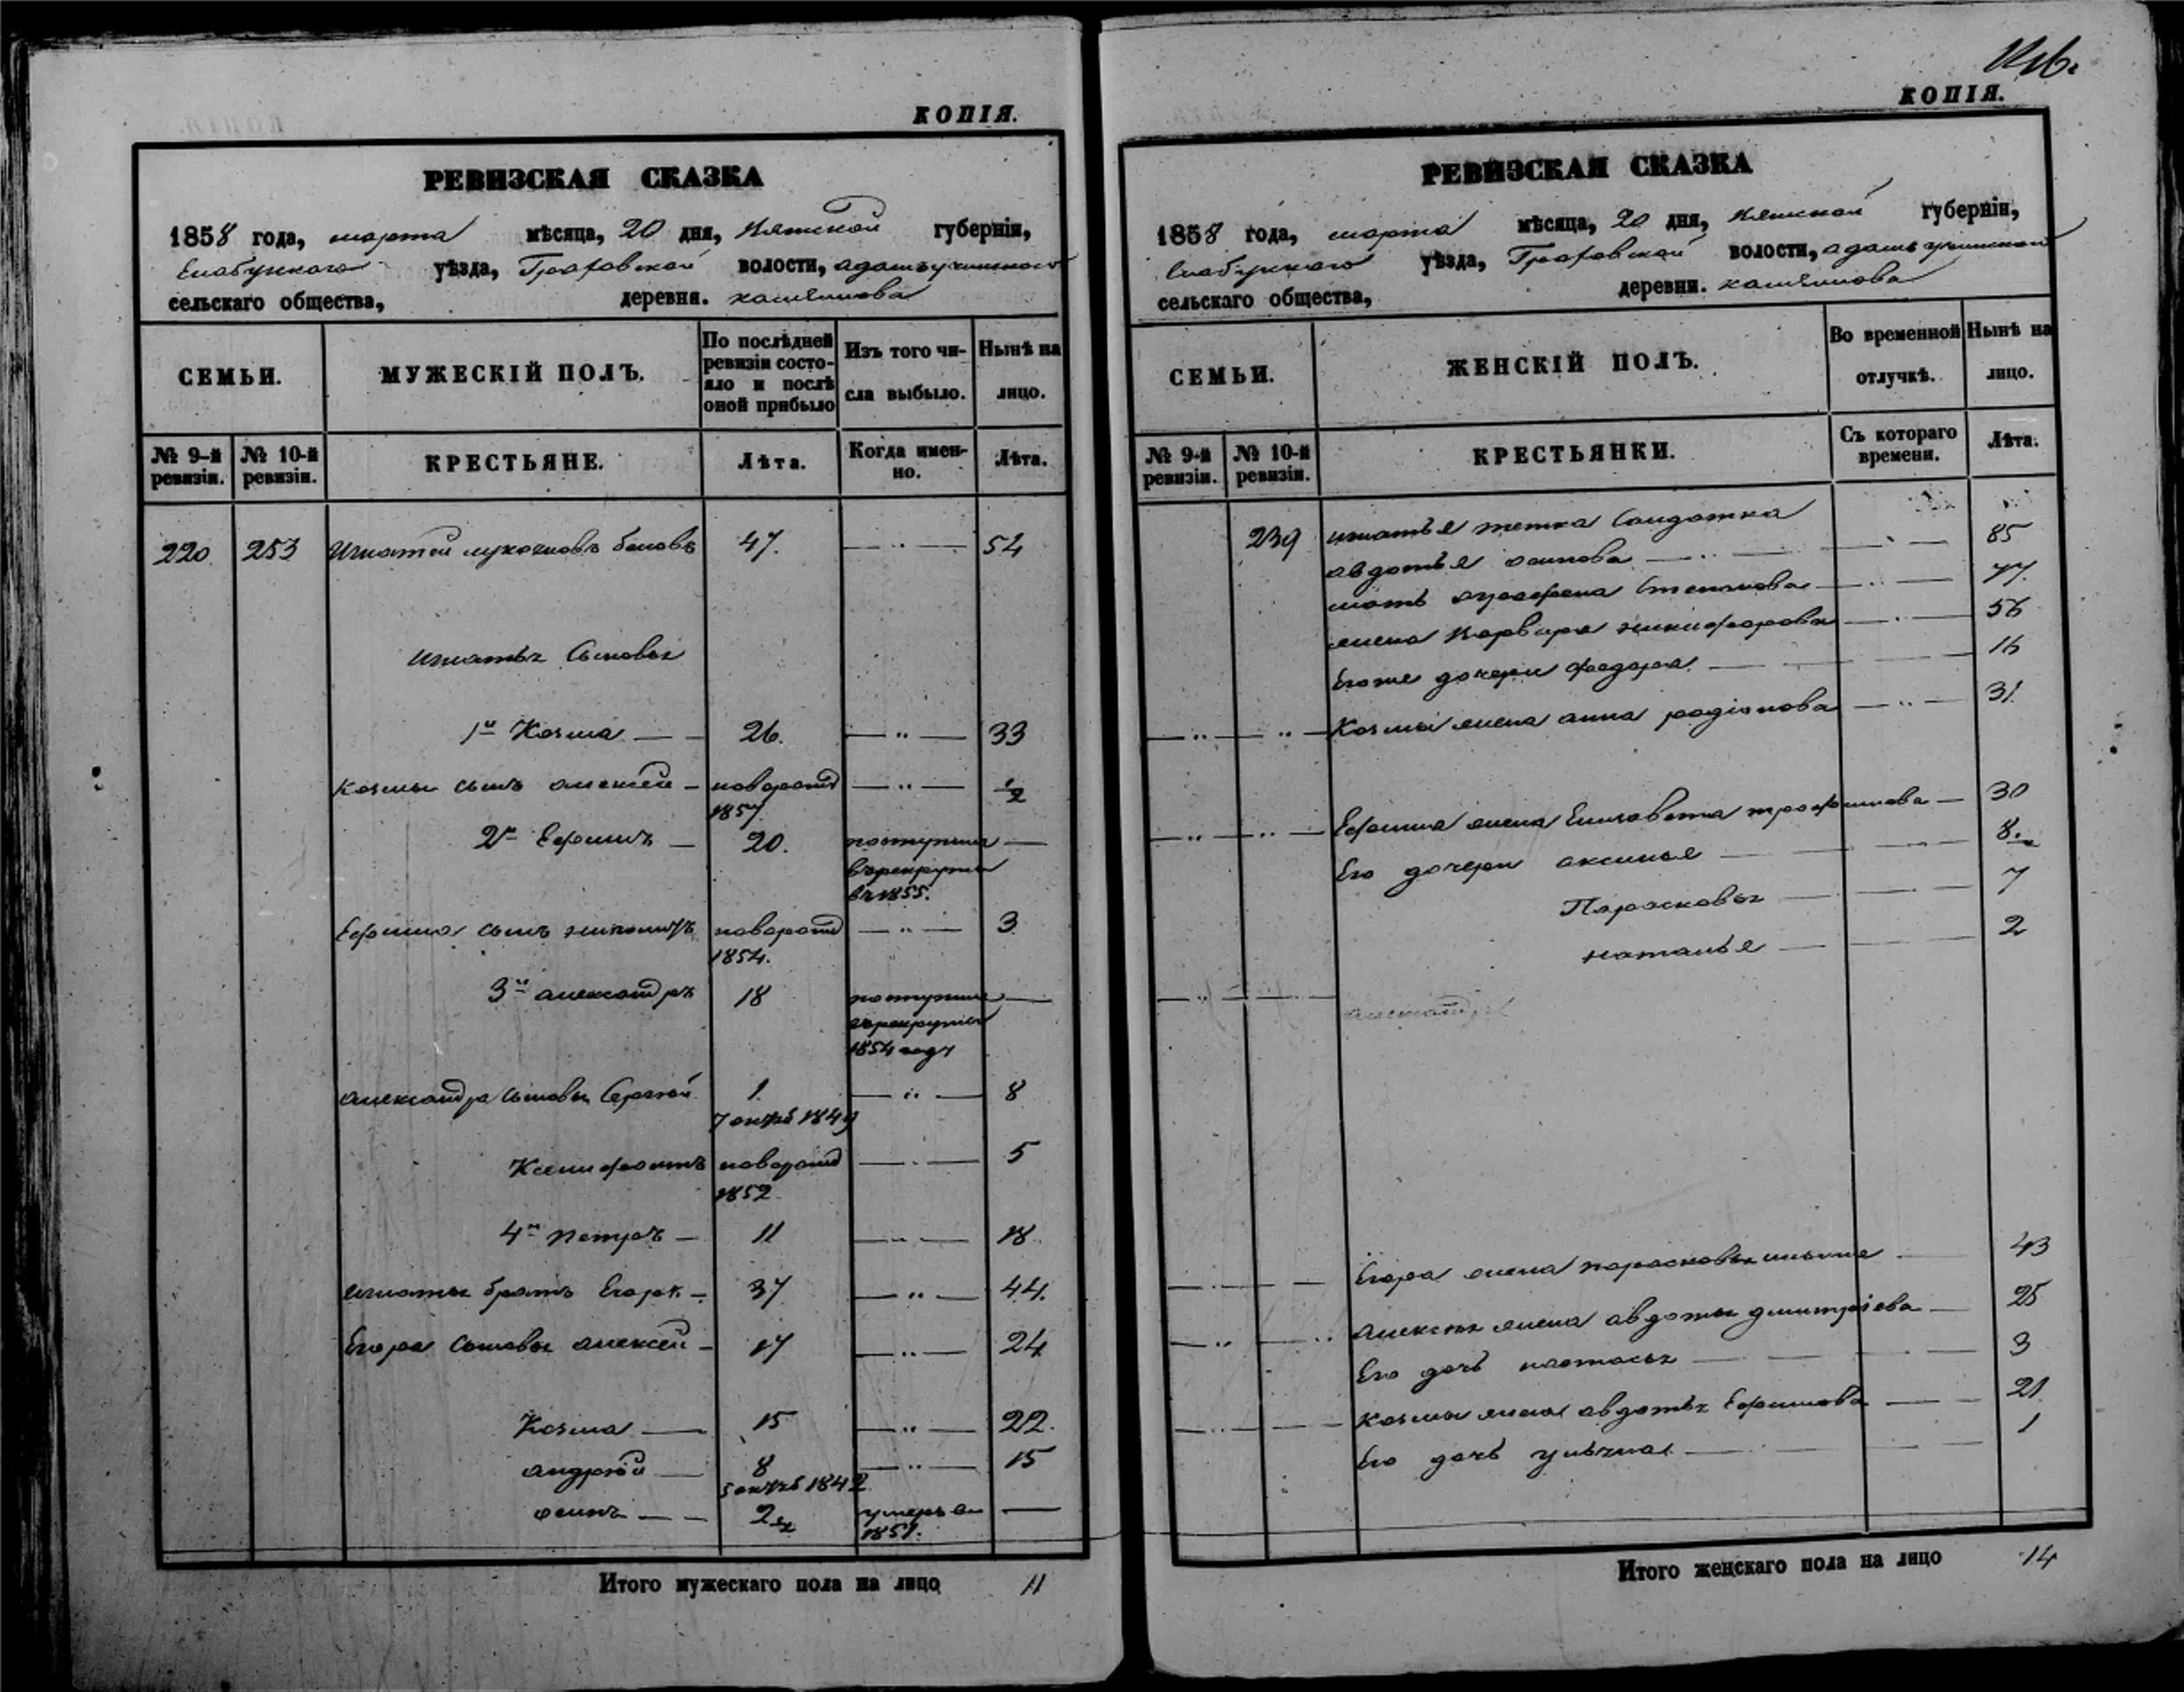 КОПІЯ.
РЕВИЗСКАЯ СКАЗКА
1858 года, марта мѣсяца, 20 дня, Вятской губерніи,
Елабужскаго уѣзда, Граховской волости,
сельскаго общества, деревня.
СЕМЬИ.
МУЖЕСКІЙ ПОЛЪ.
По послѣдней
ревизіи состо-
яло и послѣ
оной прибыло
Изъ того чи-
сла выбыло.
Нынѣ на
лицо.
№ 9-й
ревизіи.
№ 10-й
ревизіи.
КРЕСТЬЯНЕ.
Лѣта.
Когда имен-
но.
Лѣта.
220 253 Игнатей 47. 54
Игнатья Сыновья
1й Козма 26. 33
Козмы сынъ алексей новорожд 1/2
1857.
2й Ефимъ 20. поступилъ
в рекруты
в 1855.
Ефима сынъ новорожд 3
1854.
3й александръ 18 поступилъ
в рекруты
1854 году
александра Сыновья Сергей 1 8
1849
Ксенифонтъ новорожд 5
1852
4й Петръ 11 18
игнатья братъ Егоръ 37 44.
Егора Сыновья алексей 17 24
Козма 15 22.
андрей 8 15
1842
осипъ 2 умеръ в
1851.
Итого мужескаго пола на лицо 11
КОПІЯ.
РЕВИЗСКАЯ СКАЗКА
1858 года, марта мѣсяца, 20 дня, Вятской губерніи,
Елабужскаго уѣзда, Граховской волости,
сельскаго общества, деревни.
СЕМЬИ.
ЖЕНСКІЙ ПОЛЪ.
Во временной
отлучкѣ.
Нынѣ на
лицо.
№ 9-й
ревизіи.
№ 10-й
ревизіи.
КРЕСТЬЯНКИ.
Съ котораго
времени.
Лѣта.
239 игнатья тетка Солдатка
авдотья осипова 85
мать Степанова 77.
жена Варвара никифорова 56
Егоже дочери федора 16
Козмы жена анна родіонова 31.
Ефима жена Елизавета трофимова 30
Его дочери аксинья 8
Парасковья 7
наталья 2
Егора жена парасковья ильина 43
алексея жена авдотья дмитріева 25
Его дочь настасья 3
Козмы жена авдотья Ефимова 21
Его дочь ульяна 1
Итого женскаго пола на лицо 14